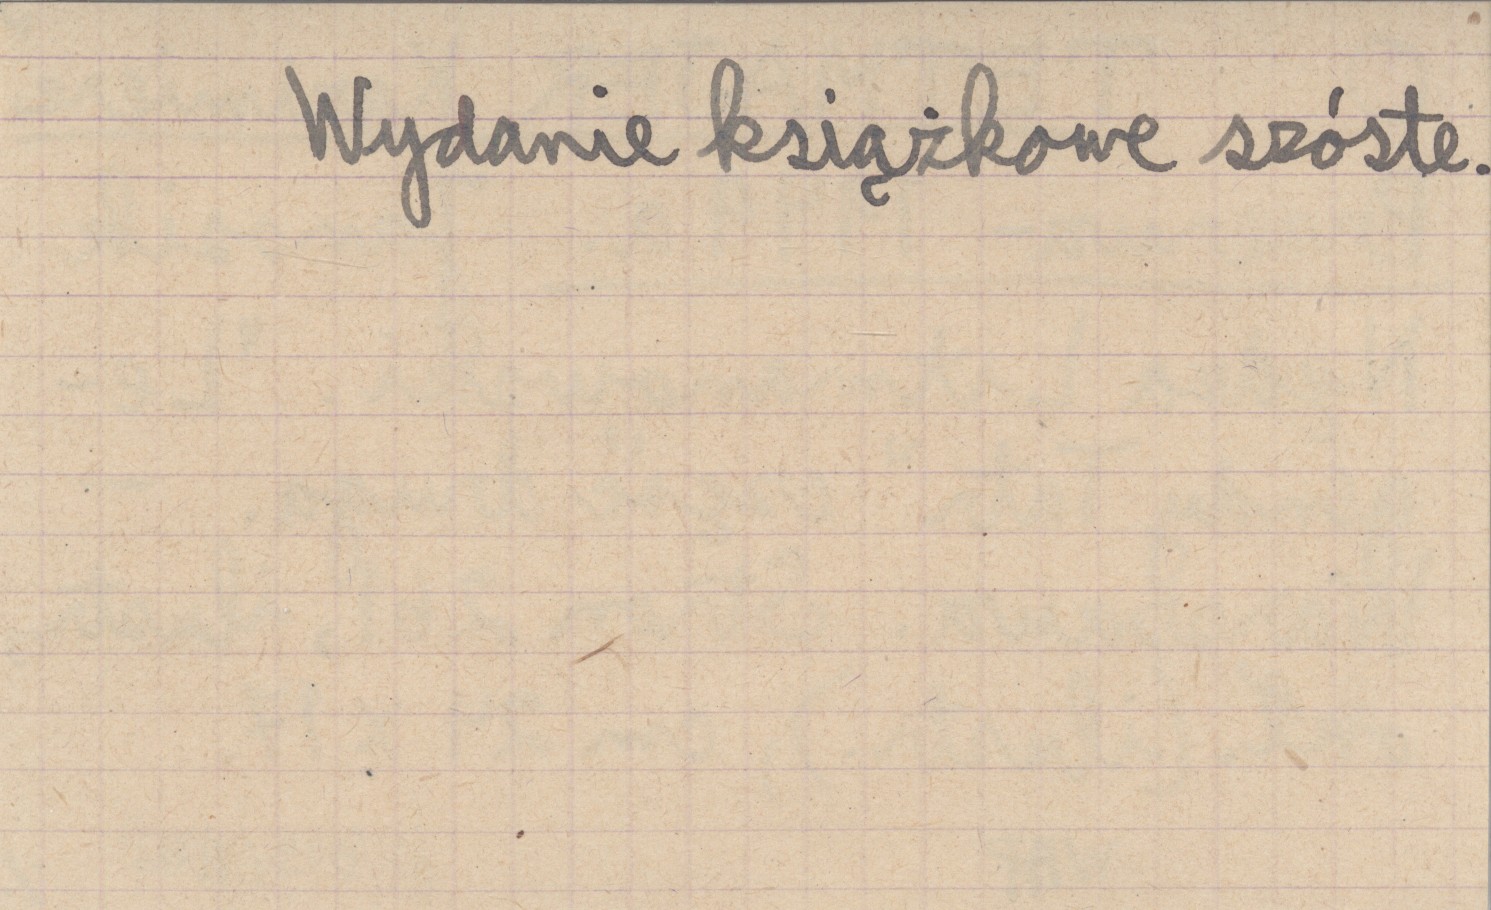 Wydanie książkowe szóste.